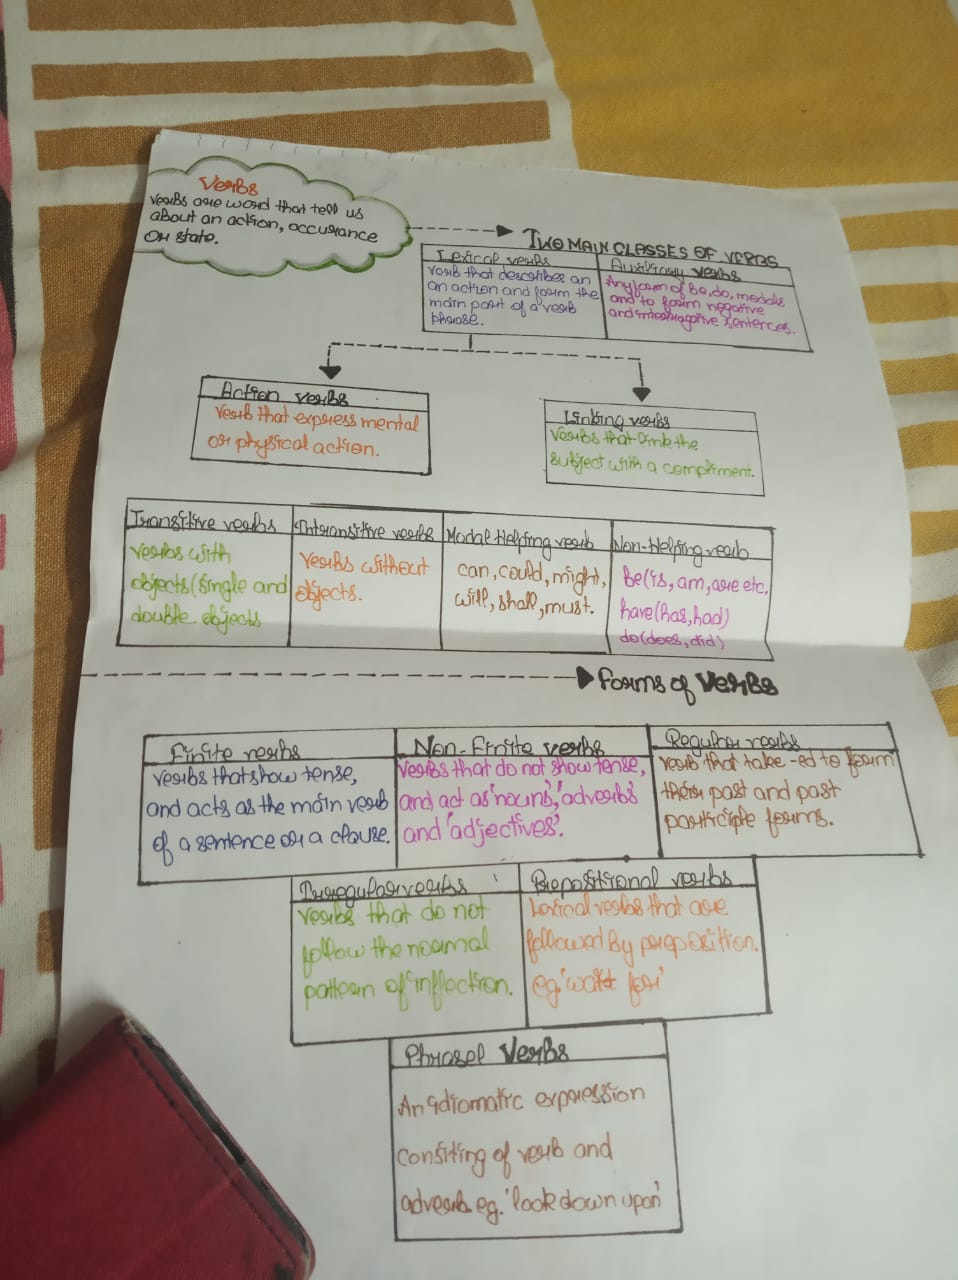 Verbs
Verbs are word that tell us
about an action, occurance
or state.
TWO MAIN CLASSES OF VERBS
Lexical verbs
Verb that describes an
an action and form the
main part of a verb
phrase.
Auxiliary verbs
Any form of be, do, modals
and to form negative
and interrogative sentences.
Action verbs
Verb that express mental
or physical action.
Linking verbs
Verbs that link the
subject with a compliment.
Transitive verbs
Verbs with
objects (single and
double objects
Intransitive verbs
Verbs without
objects.
Modal Helping verb
can, could, might,
will, shall, must.
Non-Helping verb
be (is, am, are etc.
have (has, had)
do (does, did)
Forms of Verbs
Finite verbs
Verbs that show tense,
and acts as the main verb
of a sentence or a clause.
Non-Finite verbs
Verbs that do not show tense,
and act as 'nouns', 'adverbs
and 'adjectives'.
Regular verbs
Verb that take -ed to form
their past and past
participle forms.
Irregular verbs
Verbs that do not
follow the normal
pattern of inflection.
Prepositional verbs
Lexical verbs that are
followed by preposition.
eg. 'wait for'
Phrasel Verbs
An idiomatic expression
consiting of verb and
adverb eg. 'look down upon'